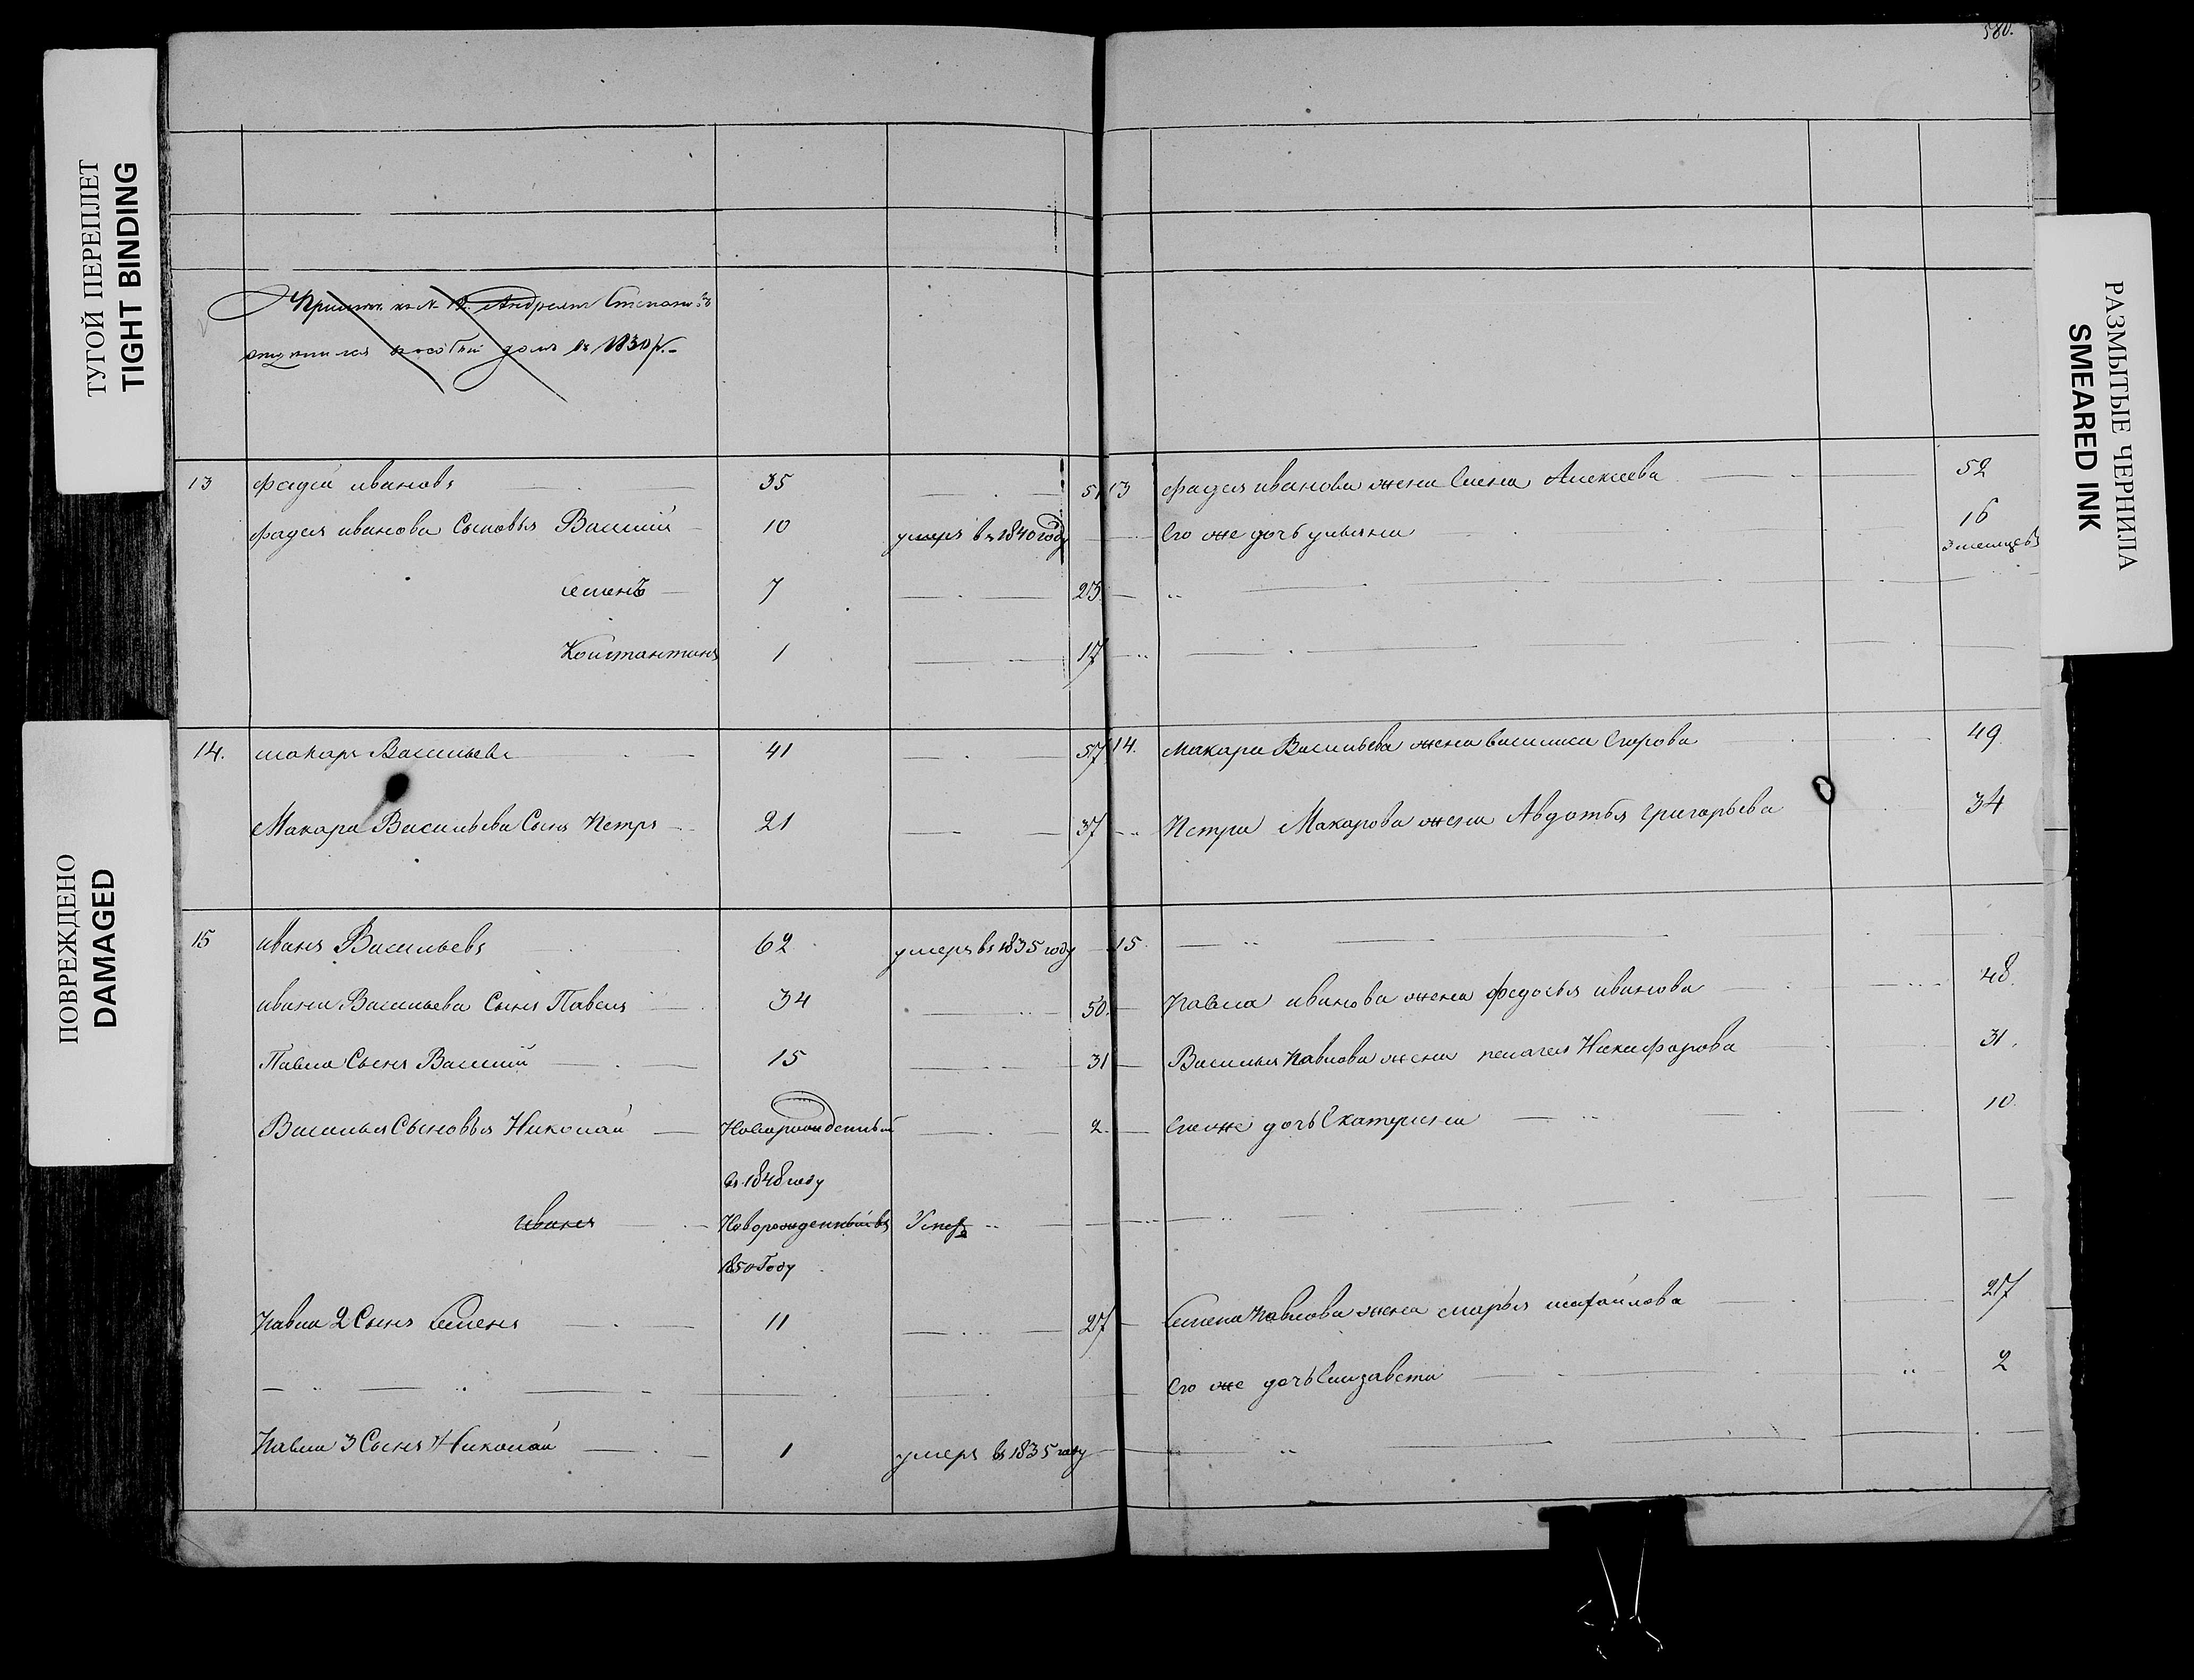 580.
ТУГОЙ ПЕРЕПЛЕТ
TIGHT BINDING
ПОВРЕЖДЕНО
DAMAGED
Андреянъ Степановъ
въ особый домъ въ 1830 г.
13 Фадей ивановъ 35 51
Фадея иванова Сыновья Василий 10 умеръ въ 1840 году
семенъ 7 23
Константинъ 1 17
14. макаръ Васильевъ 41 57
Макара Васильева Сынъ Петръ 21 37
15 иванъ Васильевъ 62 умеръ въ 1835 году
ивана Васильева Сынъ Павелъ 34 50.
Павла Сынъ Василий 15 31
Василья Сыновья Николай Новорожденный 2.
въ 1848 году
иванъ Новорожденный въ Умеръ
1850 Году
Павла 2 Сынъ Семенъ 11 27
Павла 3 Сынъ Николай 1 умеръ въ 1835 году
13 Фадея иванова жена Елена Алексеева 52
Его же дочь ульяна 16
3 месяцевъ
14. Макара Васильева жена василиса Егорова 49
Петра Макарова жена Авдотья григорьева 34
15
Павла иванова жена федосья иванова 48.
Василья Павлова жена пелагея Никифорова 31.
Его же дочь Екатерина 10.
Семена Павлова жена марья михайлова 27
Его же дочь Елизавета 2
РАЗМЫТЫЕ ЧЕРНИЛА
SMEARED INK